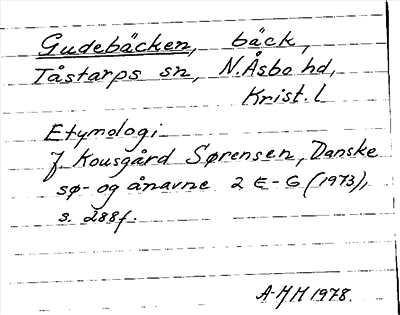 Gudebäcken, bäck,
Tåstarps sn, N. Åsbo hd,
Krist. l
Etymologi
J. Kousgård Sørensen, Danske
sø- og ånavne 2 E-G (1973),
s. 288 f.
A-HH 1978.